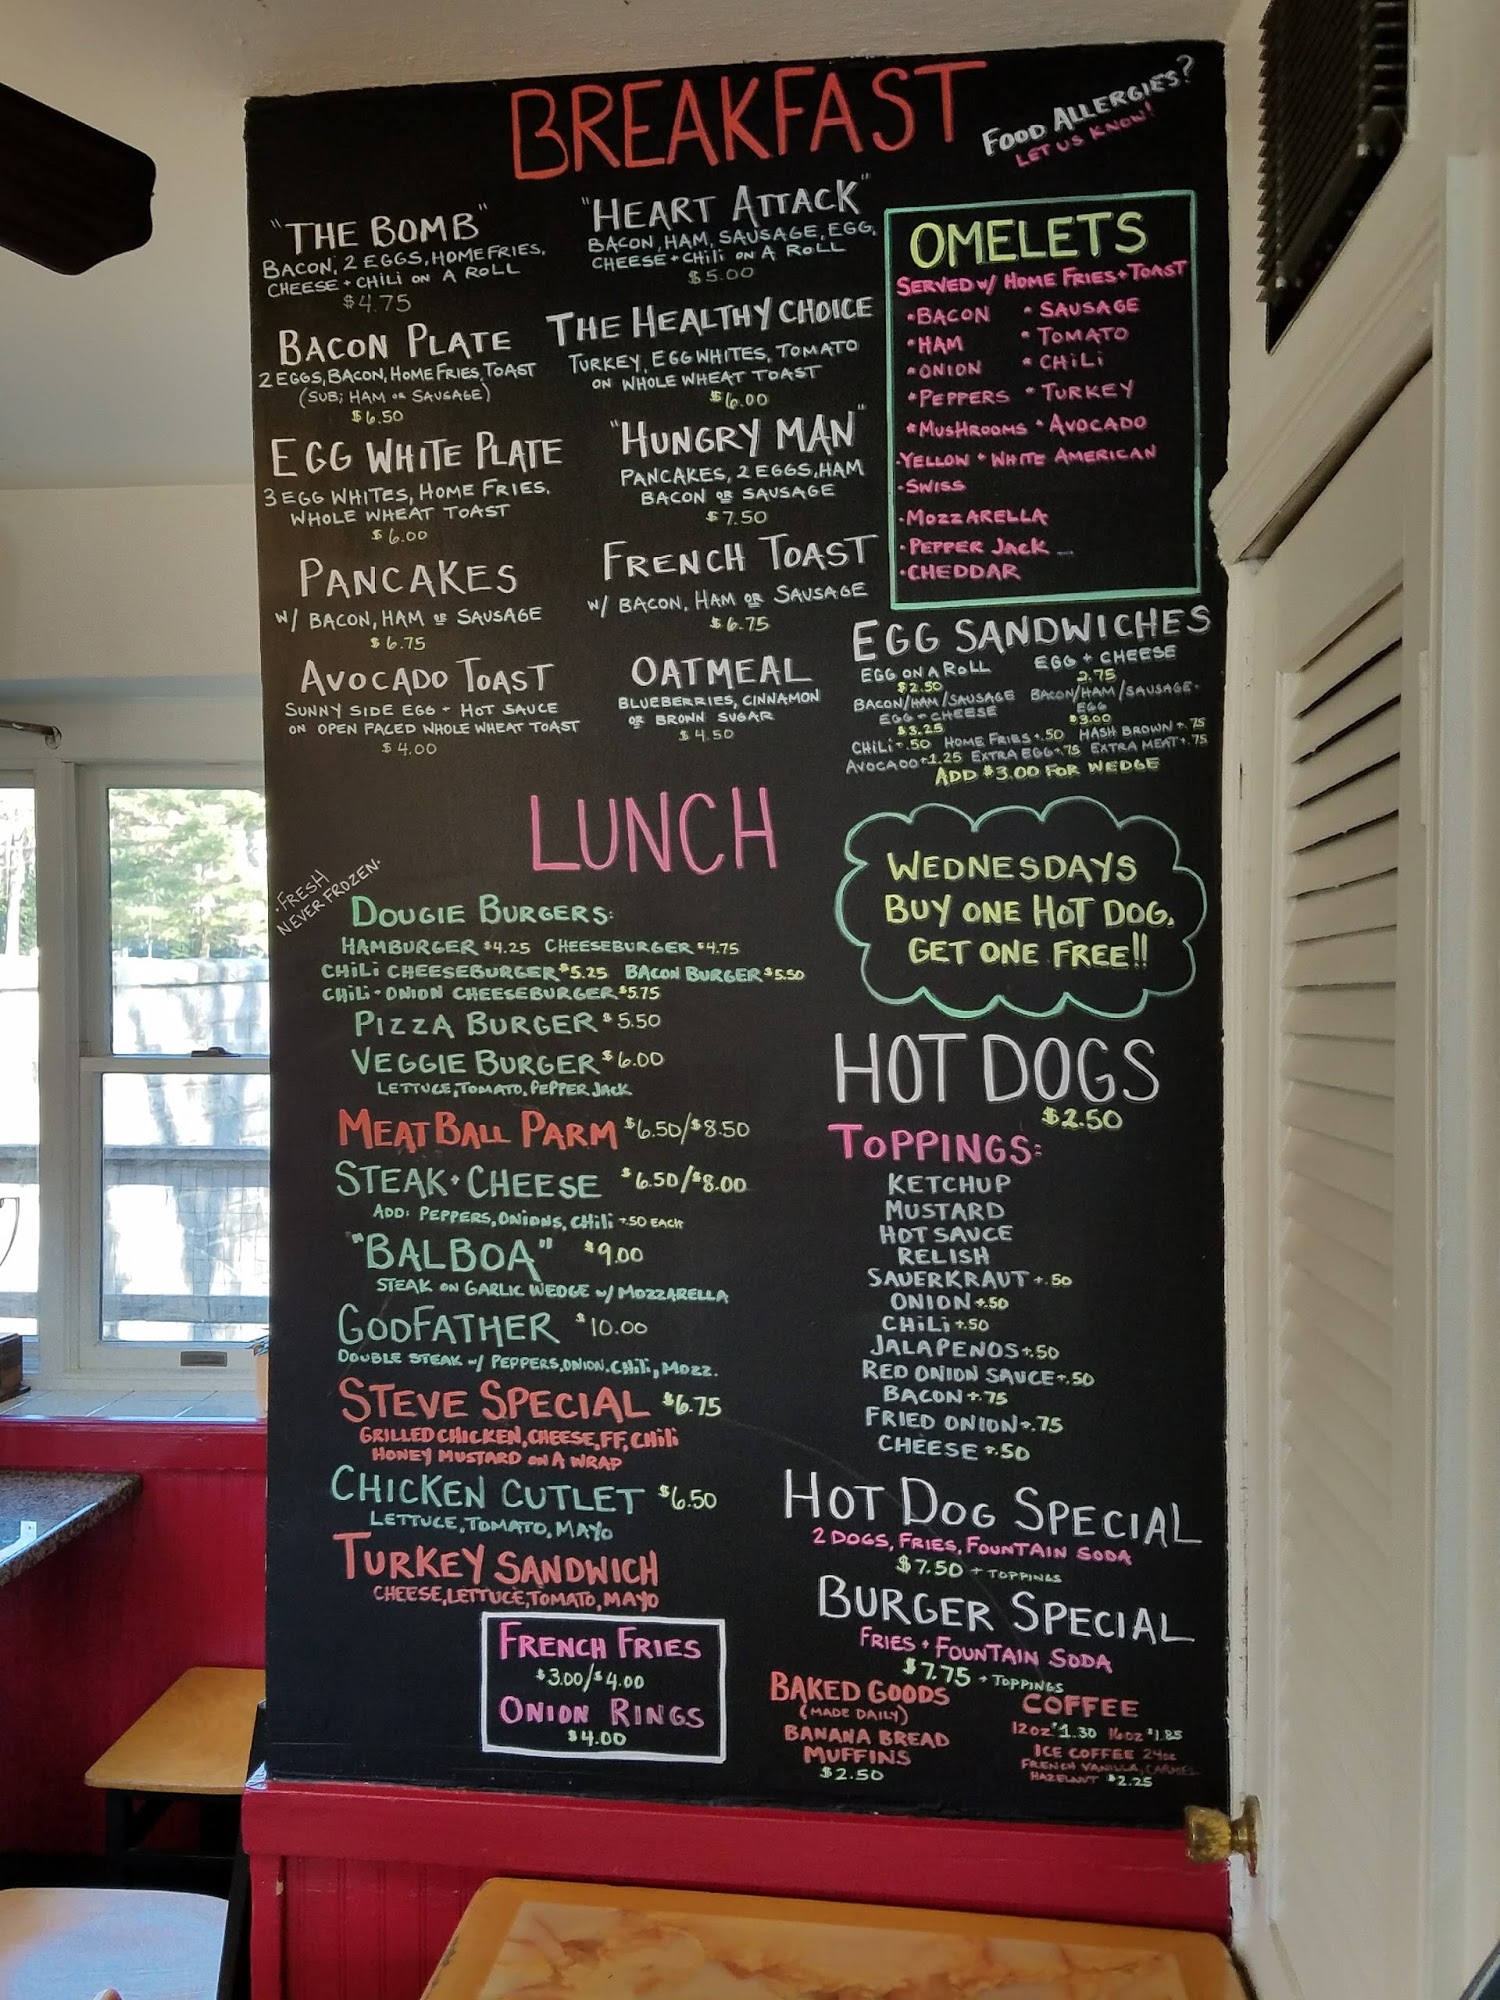 BREAKFAST
FOOD ALLERGIES?
LET US KNOW!
"THE BOMB"
BACON, 2 EGGS, HOME FRIES,
CHEESE + CHILI ON A ROLL
$4.75
"HEART ATTACK"
BACON, HAM, SAUSAGE, EGG,
CHEESE + CHILI ON A ROLL
$5.00
BACON PLATE
2 EGGS, BACON, HOME FRIES, TOAST
(SUB; HAM OR SAUSAGE)
$6.50
THE HEALTHY CHOICE
TURKEY, EGG WHITES, TOMATO
ON WHOLE WHEAT TOAST
$6.00
EGG WHITE PLATE
3 EGG WHITES, HOME FRIES,
WHOLE WHEAT TOAST
$6.00
"HUNGRY MAN"
PANCAKES, 2 EGGS, HAM
BACON OR SAUSAGE
$7.50
PANCAKES
W/ BACON, HAM OR SAUSAGE
$6.75
FRENCH TOAST
W/ BACON, HAM OR SAUSAGE
$6.75
AVOCADO TOAST
SUNNY SIDE EGG + HOT SAUCE
ON OPEN FACED WHOLE WHEAT TOAST
$4.00
OATMEAL
BLUEBERRIES, CINNAMON
OR BROWN SUGAR
$4.50
OMELETS
SERVED W/ HOME FRIES + TOAST
•BACON •SAUSAGE
•HAM •TOMATO
•ONION •CHILI
•PEPPERS •TURKEY
•MUSHROOMS •AVOCADO
•YELLOW + WHITE AMERICAN
•SWISS
•MOZZARELLA
•PEPPER JACK
•CHEDDAR
EGG SANDWICHES
EGG ON A ROLL
$2.50
EGG + CHEESE
2.75
BACON/HAM/SAUSAGE
EGG + CHEESE
$3.25
BACON/HAM/SAUSAGE
EGG
$3.00
CHILI +.50 HOME FRIES +.50 HASH BROWN +.75
AVOCADO +1.25 EXTRA EGG +.75 EXTRA MEAT +.75
ADD $3.00 FOR WEDGE
LUNCH
•FRESH
NEVER FROZEN•
DOUGIE BURGERS:
HAMBURGER $4.25 CHEESEBURGER $4.75
CHILI CHEESEBURGER $5.25 BACON BURGER $5.50
CHILI + ONION CHEESEBURGER $5.75
PIZZA BURGER $5.50
VEGGIE BURGER $6.00
LETTUCE, TOMATO, PEPPER JACK
MEATBALL PARM $6.50/$8.50
STEAK + CHEESE $6.50/$8.00
ADD: PEPPERS, ONIONS, CHILI +.50 EACH
"BALBOA" $9.00
STEAK ON GARLIC WEDGE W/ MOZZARELLA
GODFATHER $10.00
DOUBLE STEAK W/ PEPPERS, ONION, CHILI, MOZZ.
STEVE SPECIAL $6.75
GRILLED CHICKEN, CHEESE, FF, CHILI
HONEY MUSTARD ON A WRAP
CHICKEN CUTLET $6.50
LETTUCE, TOMATO, MAYO
TURKEY SANDWICH
CHEESE, LETTUCE, TOMATO, MAYO
FRENCH FRIES
$3.00/$4.00
ONION RINGS
$4.00
WEDNESDAYS
BUY ONE HOT DOG,
GET ONE FREE!!
HOT DOGS
$2.50
TOPPINGS:
KETCHUP
MUSTARD
HOT SAUCE
RELISH
SAUERKRAUT +.50
ONION +.50
CHILI +.50
JALAPENOS +.50
RED ONION SAUCE +.50
BACON +.75
FRIED ONION +.75
CHEESE +.50
HOT DOG SPECIAL
2 DOGS, FRIES, FOUNTAIN SODA
$7.50 + TOPPINGS
BURGER SPECIAL
FRIES + FOUNTAIN SODA
$7.75 + TOPPINGS
BAKED GOODS
(MADE DAILY)
BANANA BREAD
MUFFINS
$2.50
COFFEE
12oz $1.30 16oz $1.85
ICE COFFEE 24oz
FRENCH VANILLA, CARMEL
HAZELNUT $2.25